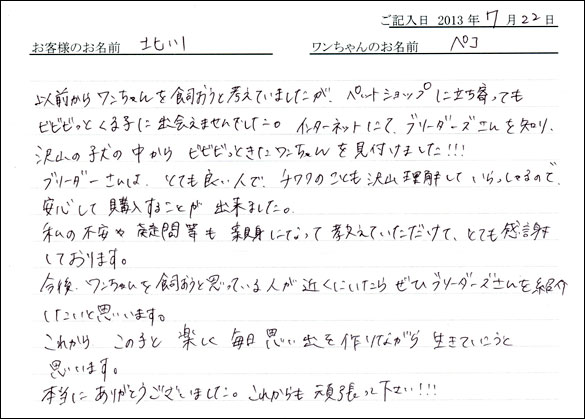 ご記入日 2013 年 7 月 22 日
お客様のお名前 北川 ワンちゃんのお名前 ペコ
以前からワンちゃんを飼おうと考えていましたが、ペットショップに立ち寄っても
ビビビッとくる子に出会えませんでした。インターネットにて、ブリーダーズさんを知り、
沢山の子犬の中からビビビッときたワンちゃんを見付けました!!!
ブリーダーさんは、とても良い人で、チワワのことも沢山理解していらっしゃるので、
安心して購入することが出来ました。
私の不安や疑問等も親身になって教えていただけて、とても感謝
しております。
今後、ワンちゃんを飼おうと思っている人が近くにいたらぜひブリーダーズさんを紹介
したいと思います。
これからこの子と楽しく毎日思い出を作りながら生きていこうと
思います。
本当にありがとうございました。これからも頑張って下さい!!!